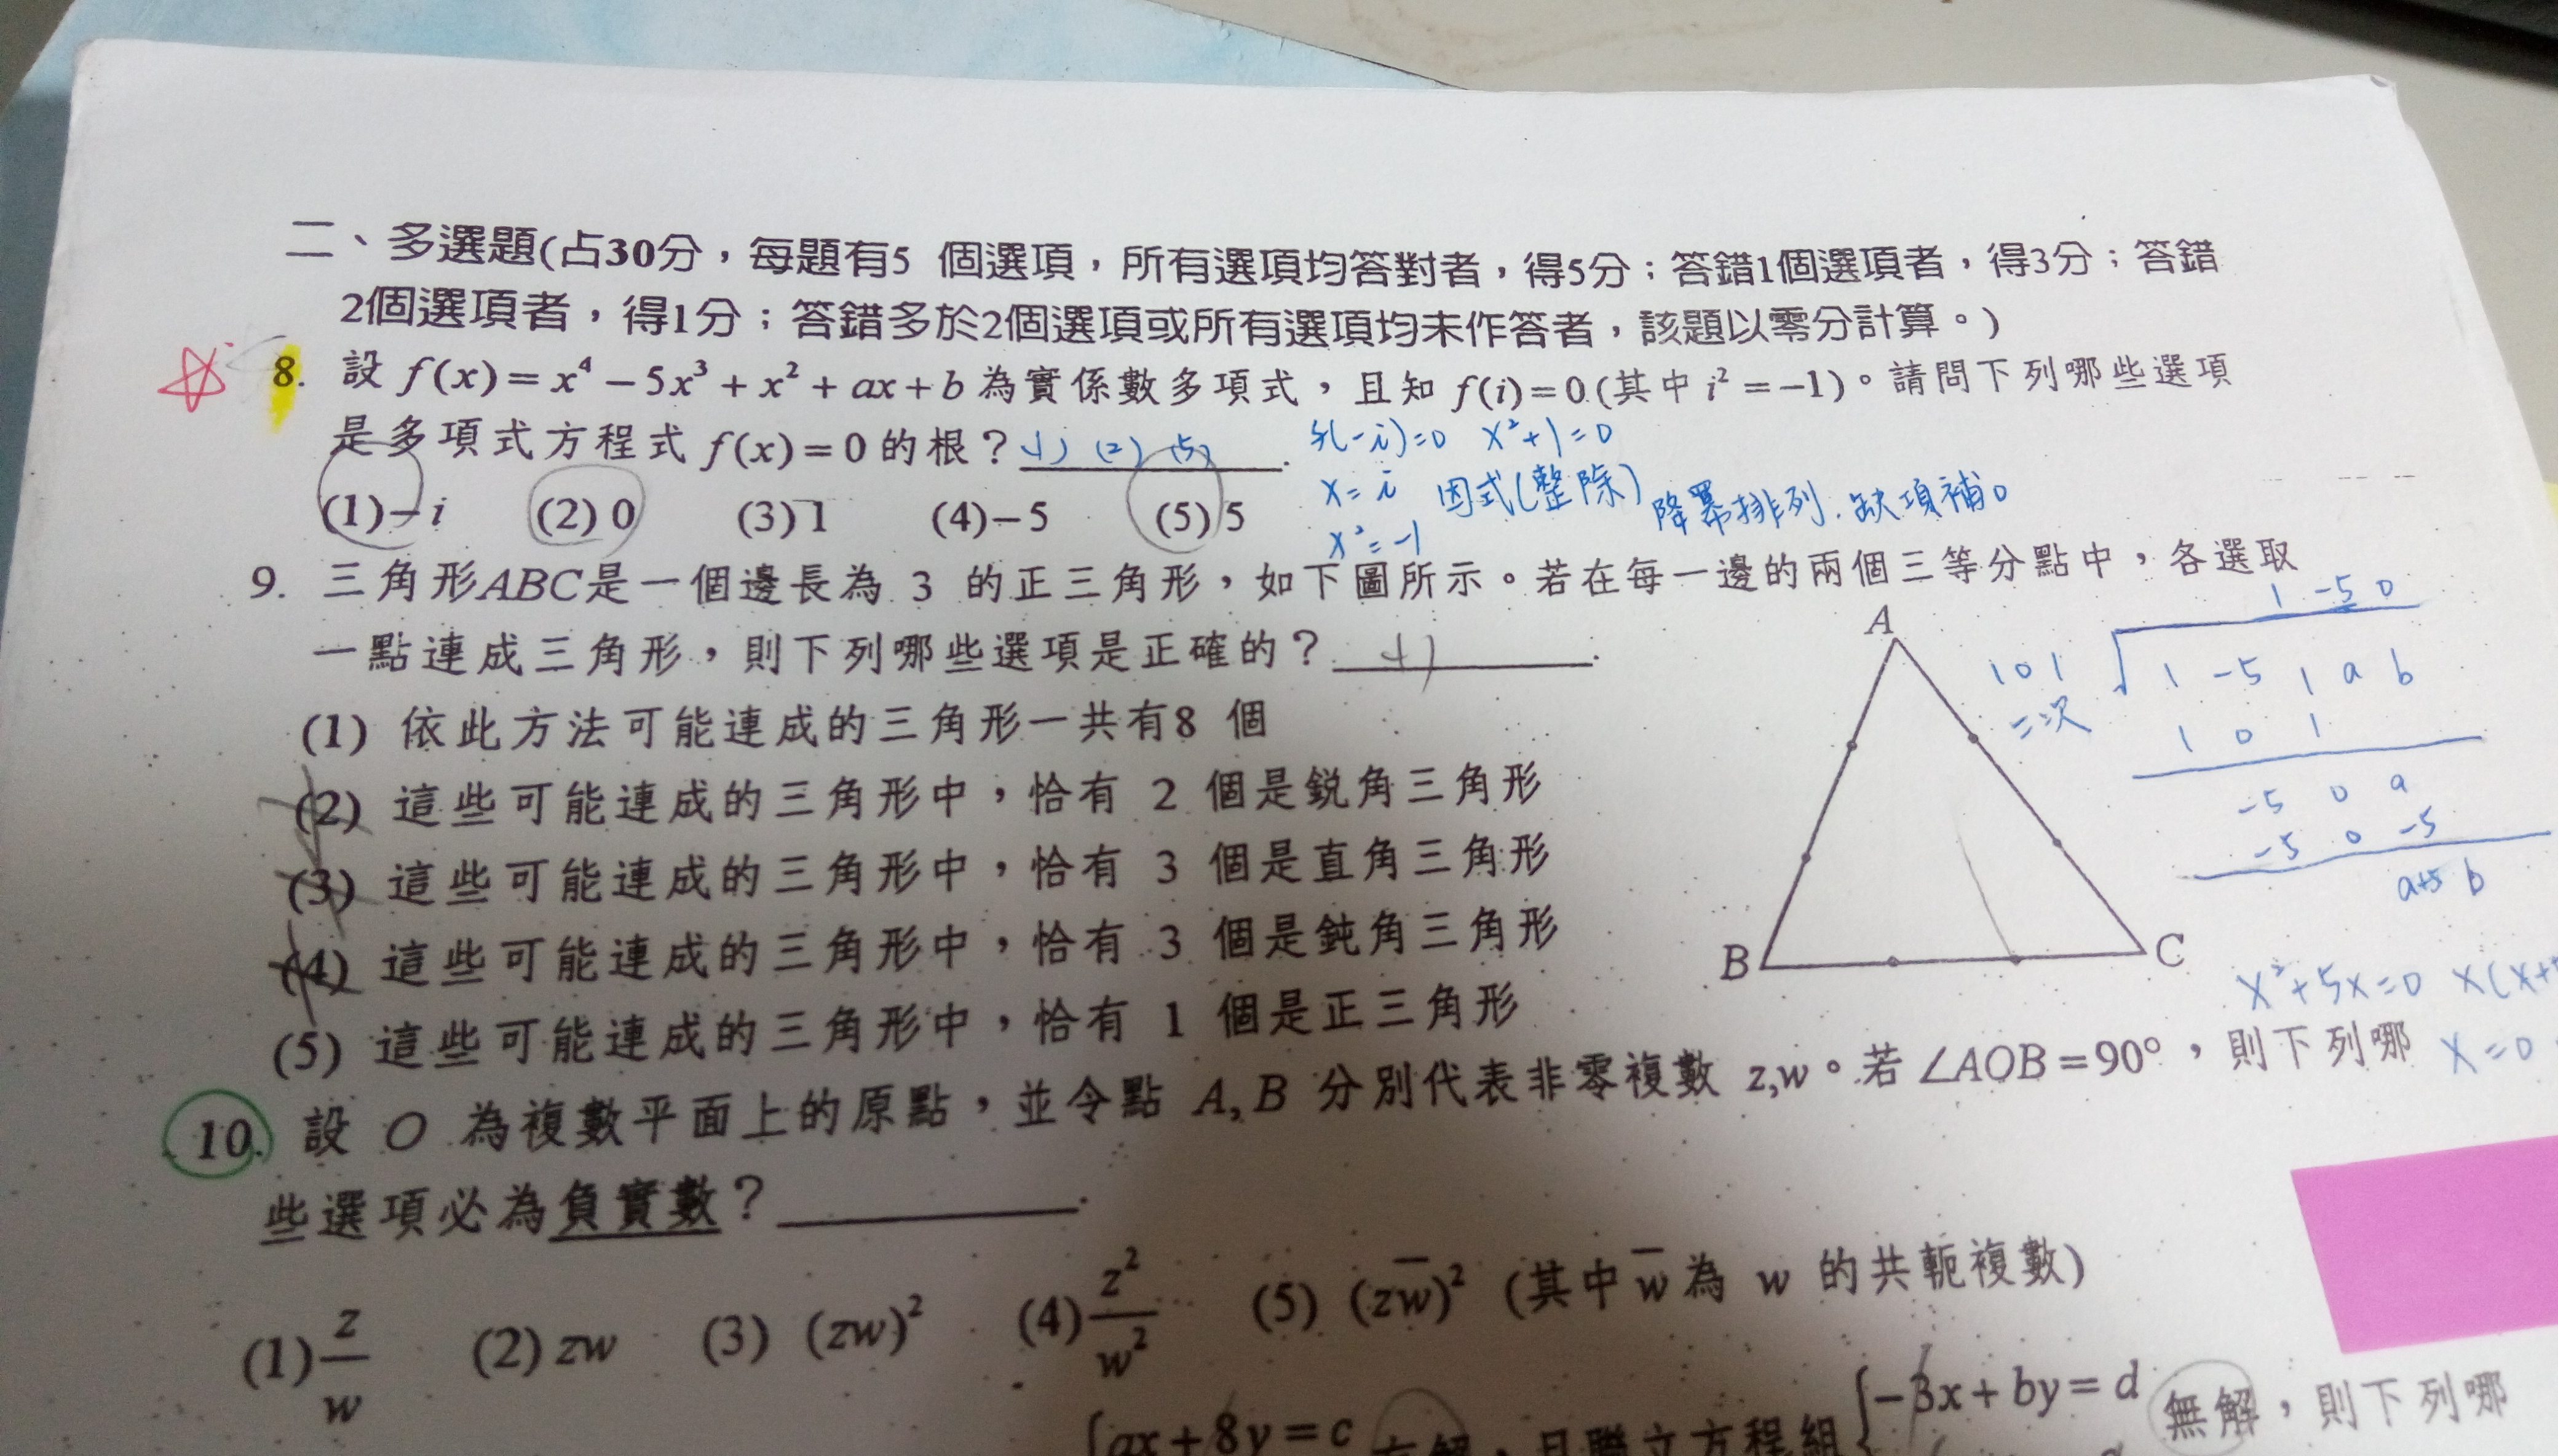 二、多選題(占30分，每題有5 個選項，所有選項均答對者，得5分；答錯1個選項者，得3分；答錯
2個選項者，得1分；答錯多於2個選項或所有選項均未作答者，該題以零分計算。)
8. 設 f(x)=x⁴−5x³+x²+ax+b 為實係數多項式，且知 f(i)=0(其中 i²=−1)。請問下列哪些選項
是多項式方程式 f(x)=0 的根？(1) (2) (5).
f(-i)=0 x²+1=0
(1)−i (2) 0 (3) 1 (4)−5 (5) 5
x=i 因式(整除) 降冪排列.缺項補0
x²=-1
9. 三角形ABC是一個邊長為 3 的正三角形，如下圖所示。若在每一邊的兩個三等分點中，各選取
一點連成三角形，則下列哪些選項是正確的？(1).
(1) 依此方法可能連成的三角形一共有8 個
(2) 這些可能連成的三角形中，恰有 2 個是銳角三角形
(3) 這些可能連成的三角形中，恰有 3 個是直角三角形
(4) 這些可能連成的三角形中，恰有 3 個是鈍角三角形
(5) 這些可能連成的三角形中，恰有 1 個是正三角形
A
B
C
1 -5 0
1 0 1
1 -5 1 a b
二次
1 0 1
-5 0 a
-5 0 -5
a+5 b
x²+5x=0 x(x+
x=0
10. 設 O 為複數平面上的原點，並令點 A, B 分別代表非零複數 z,w。若 ∠AOB=90°，則下列哪
些選項必為負實數？
(1) z/w (2) zw (3) (zw)² (4) z²/w² (5) (zw̄)² (其中 w̄ 為 w 的共軛複數)
ax+8y=c 有解，且聯立方程組 −3x+by=d 無解，則下列哪